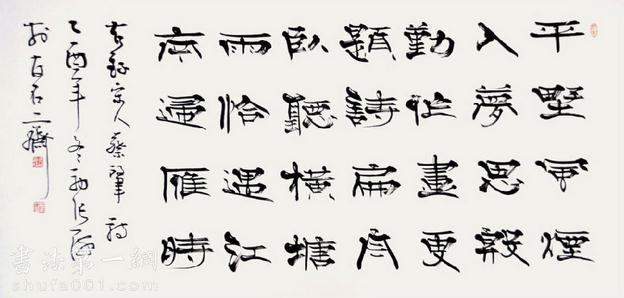 平野風煙
入夢思殷
勤作畫更
題詩扁舟
臥聽橫塘
雨恰遇江
南歸雁時
宋人蔡肇詩
乙酉年冬初張
於百石齋
書法第一網
shufa001.com